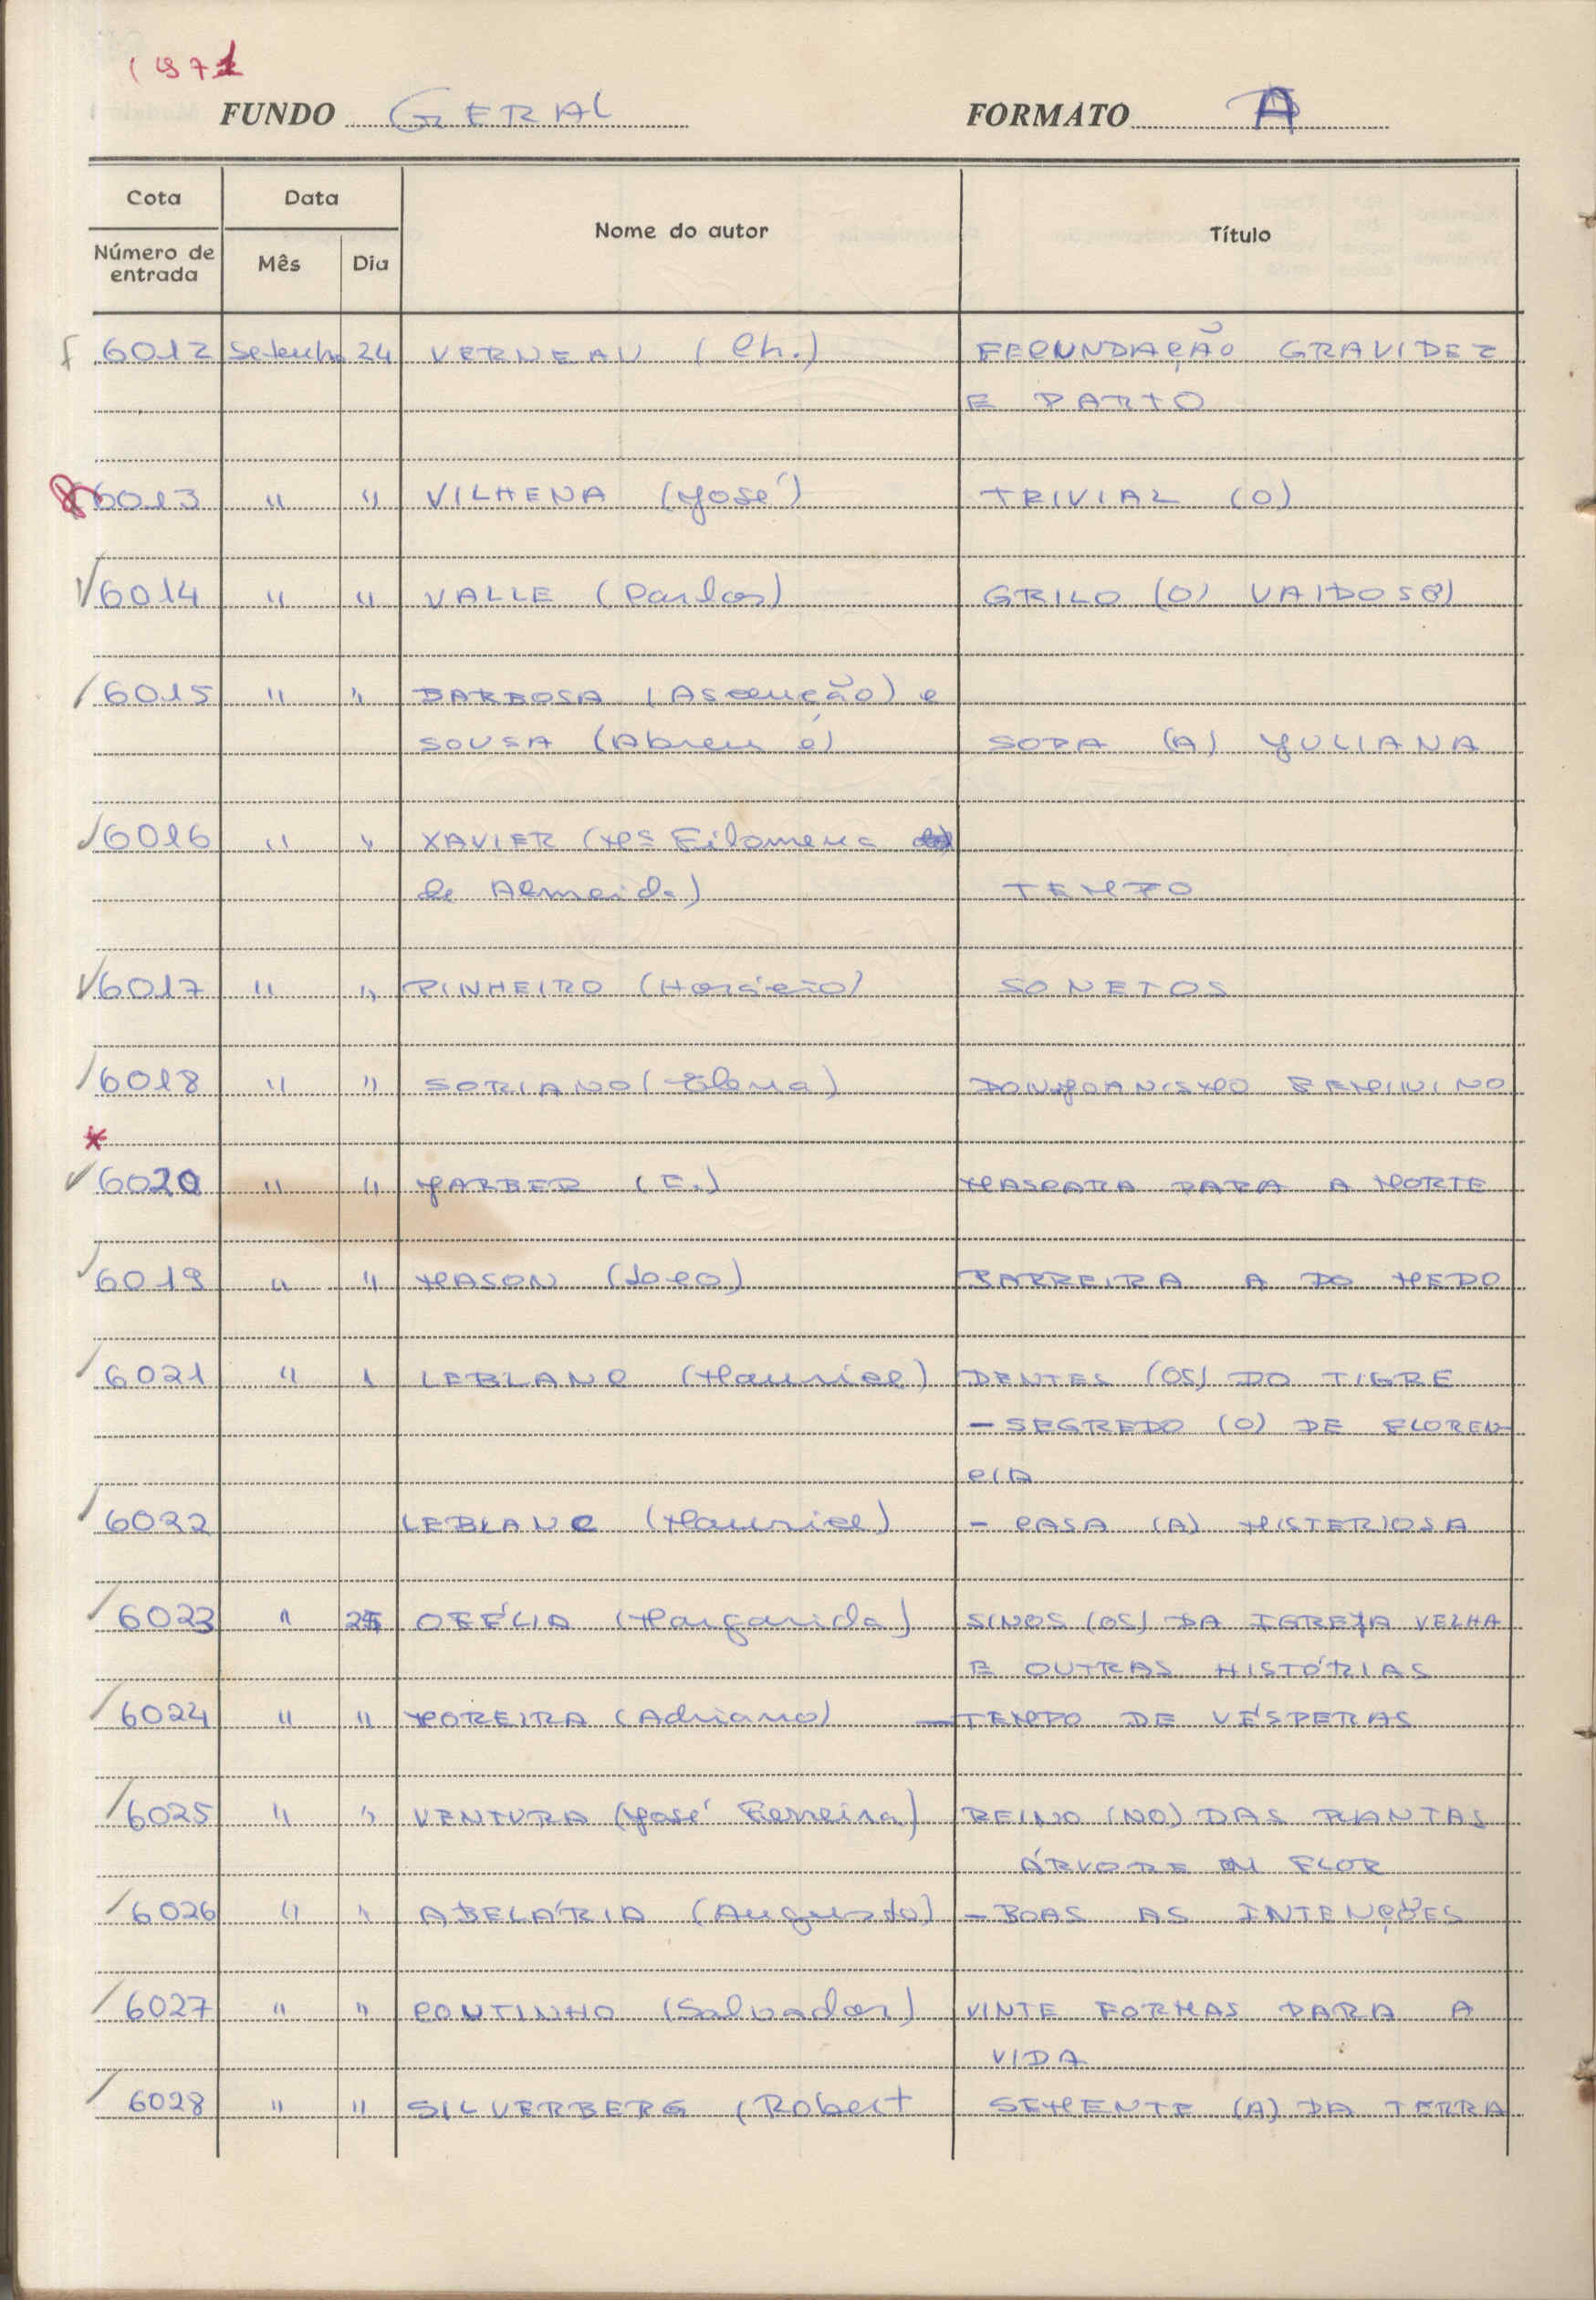 1971
FUNDO GERAL FORMATO A
Cota Data Nome do autor Título
Número de entrada Mês Dia
6012 Setembro 24 VERNEAU (Ch.) FECUNDAÇÃO GRAVIDEZ
E PARTO
6013 " " VILHENA (José) TRIVIAL (O)
6014 " " VALLE (Carlos) GRILO (O) VAIDOSO)
6015 " " BARBOSA (Ascenção) e
SOUSA (Abreu é) SOPA (A) JULIANA
6016 " " XAVIER (Mª Filomena
de Almeida) TEMPO
6017 " " PINHEIRO (Horácio) SONETOS
6018 " " SORIANO (Elena) DONJOANISMO FEMININO
*
6020 " " JARBER (E.) MASCARA PARA A MORTE
6019 " " MASON (Loco) BARREIRA A DO MEDO
6021 " " LEBLANC (Maurice) DENTES (OS) DO TIGRE
- SEGREDO (O) DE FLOREN-
CIA
6022 LEBLANC (Maurice) - CASA (A) MISTERIOSA
6023 " 25 OFÉLIA (Margarida) SINOS (OS) DA IGREJA VELHA
E OUTRAS HISTÓRIAS
6024 " " MOREIRA (Adriano) - TEMPO DE VÉSPERAS
6025 " " VENTURA (José Ferreira) REINO (NO) DAS PLANTAS
ÁRVORE EM FLOR
6026 " " ABELÁRIA (Augusto) - BOAS AS INTENÇÕES
6027 " " COUTINHO (Salvador) VINTE FORMAS PARA A
VIDA
6028 " " SILVERBERG (Robert SEMENTE (A) DA TERRA